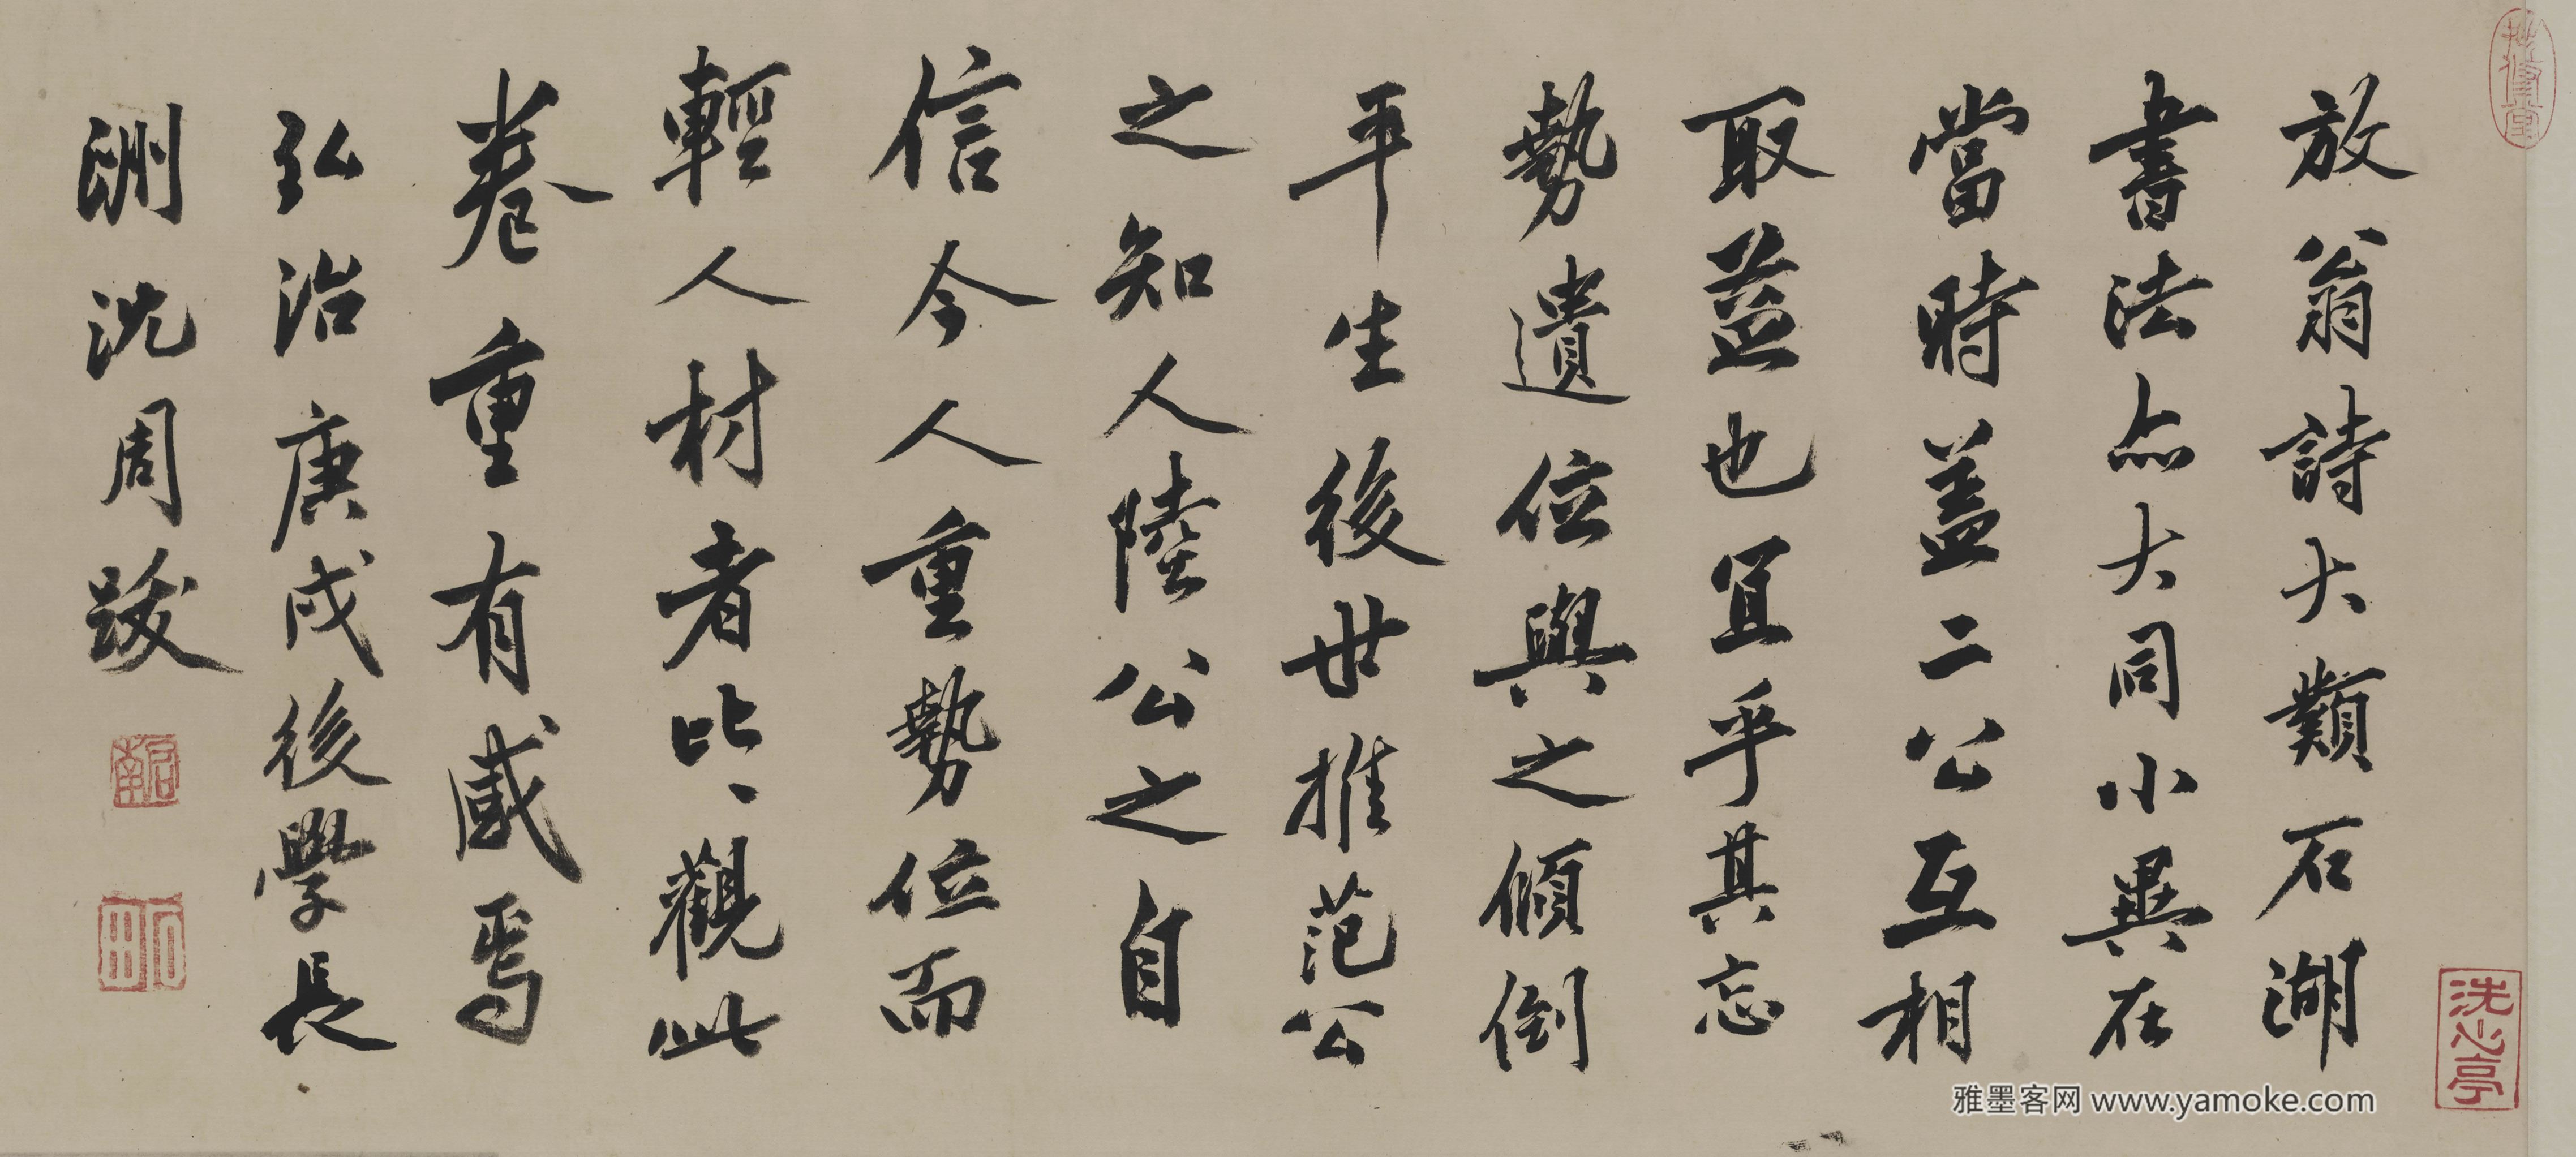 放翁詩大類石湖
書法亦大同小異在
當時蓋二公互相
取益也冝乎其忘
勢遺位與之傾倒
平生後世推范公
之知人陸公之自
信今人重勢位而
輕人材者比〻觀此
卷重有感焉
弘治庚戌後學長
洲沈周跋
啟南
石田
洗心亭
雅墨客网 www.yamoke.com